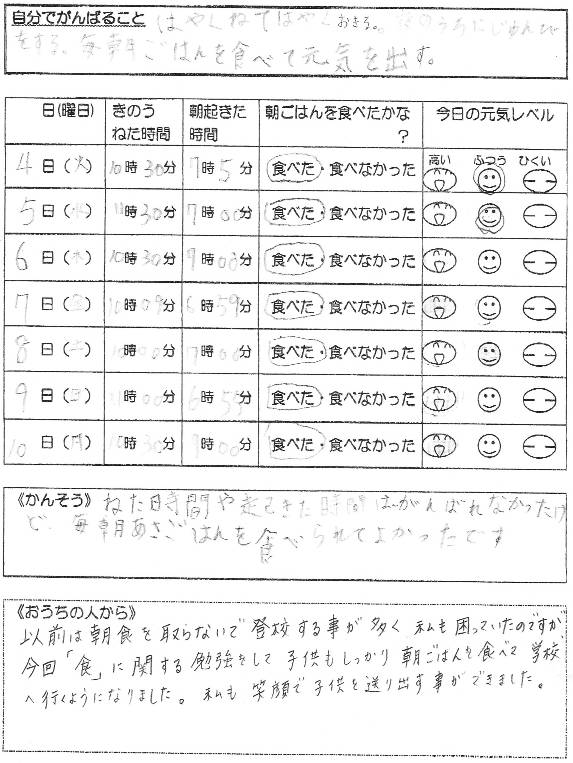 自分でがんばること
はやくねてはやくおきる。
をする。毎朝ごはんを食べて元気を出す。
日(曜日) きのうねた時間 朝起きた時間 朝ごはんを食べたかな? 今日の元気レベル
高い ふつう ひくい
4日(火) 10時30分 7時5分 食べた・食べなかった
5日(水) 11時30分 7時00分 食べた・食べなかった
6日(木) 10時30分 時00分 食べた・食べなかった
7日(金) 10時09分 6時59分 食べた・食べなかった
8日(土) 時00分 7時00分 食べた・食べなかった
9日(日) 11時00分 6時55分 食べた・食べなかった
10日(月) 10時30分 時00分 食べた・食べなかった
《かんそう》ねた時間や起きた時間はがんばれなかったけ
ど、毎朝あさごはんを食べられてよかったです
《おうちの人から》
以前は朝食を取らないで登校する事が多く私も困っていたのですが、
今回「食」に関する勉強をして子供もしっかり朝ごはんを食べて学校
へ行くようになりました。私も笑顔で子供を送り出す事ができました。